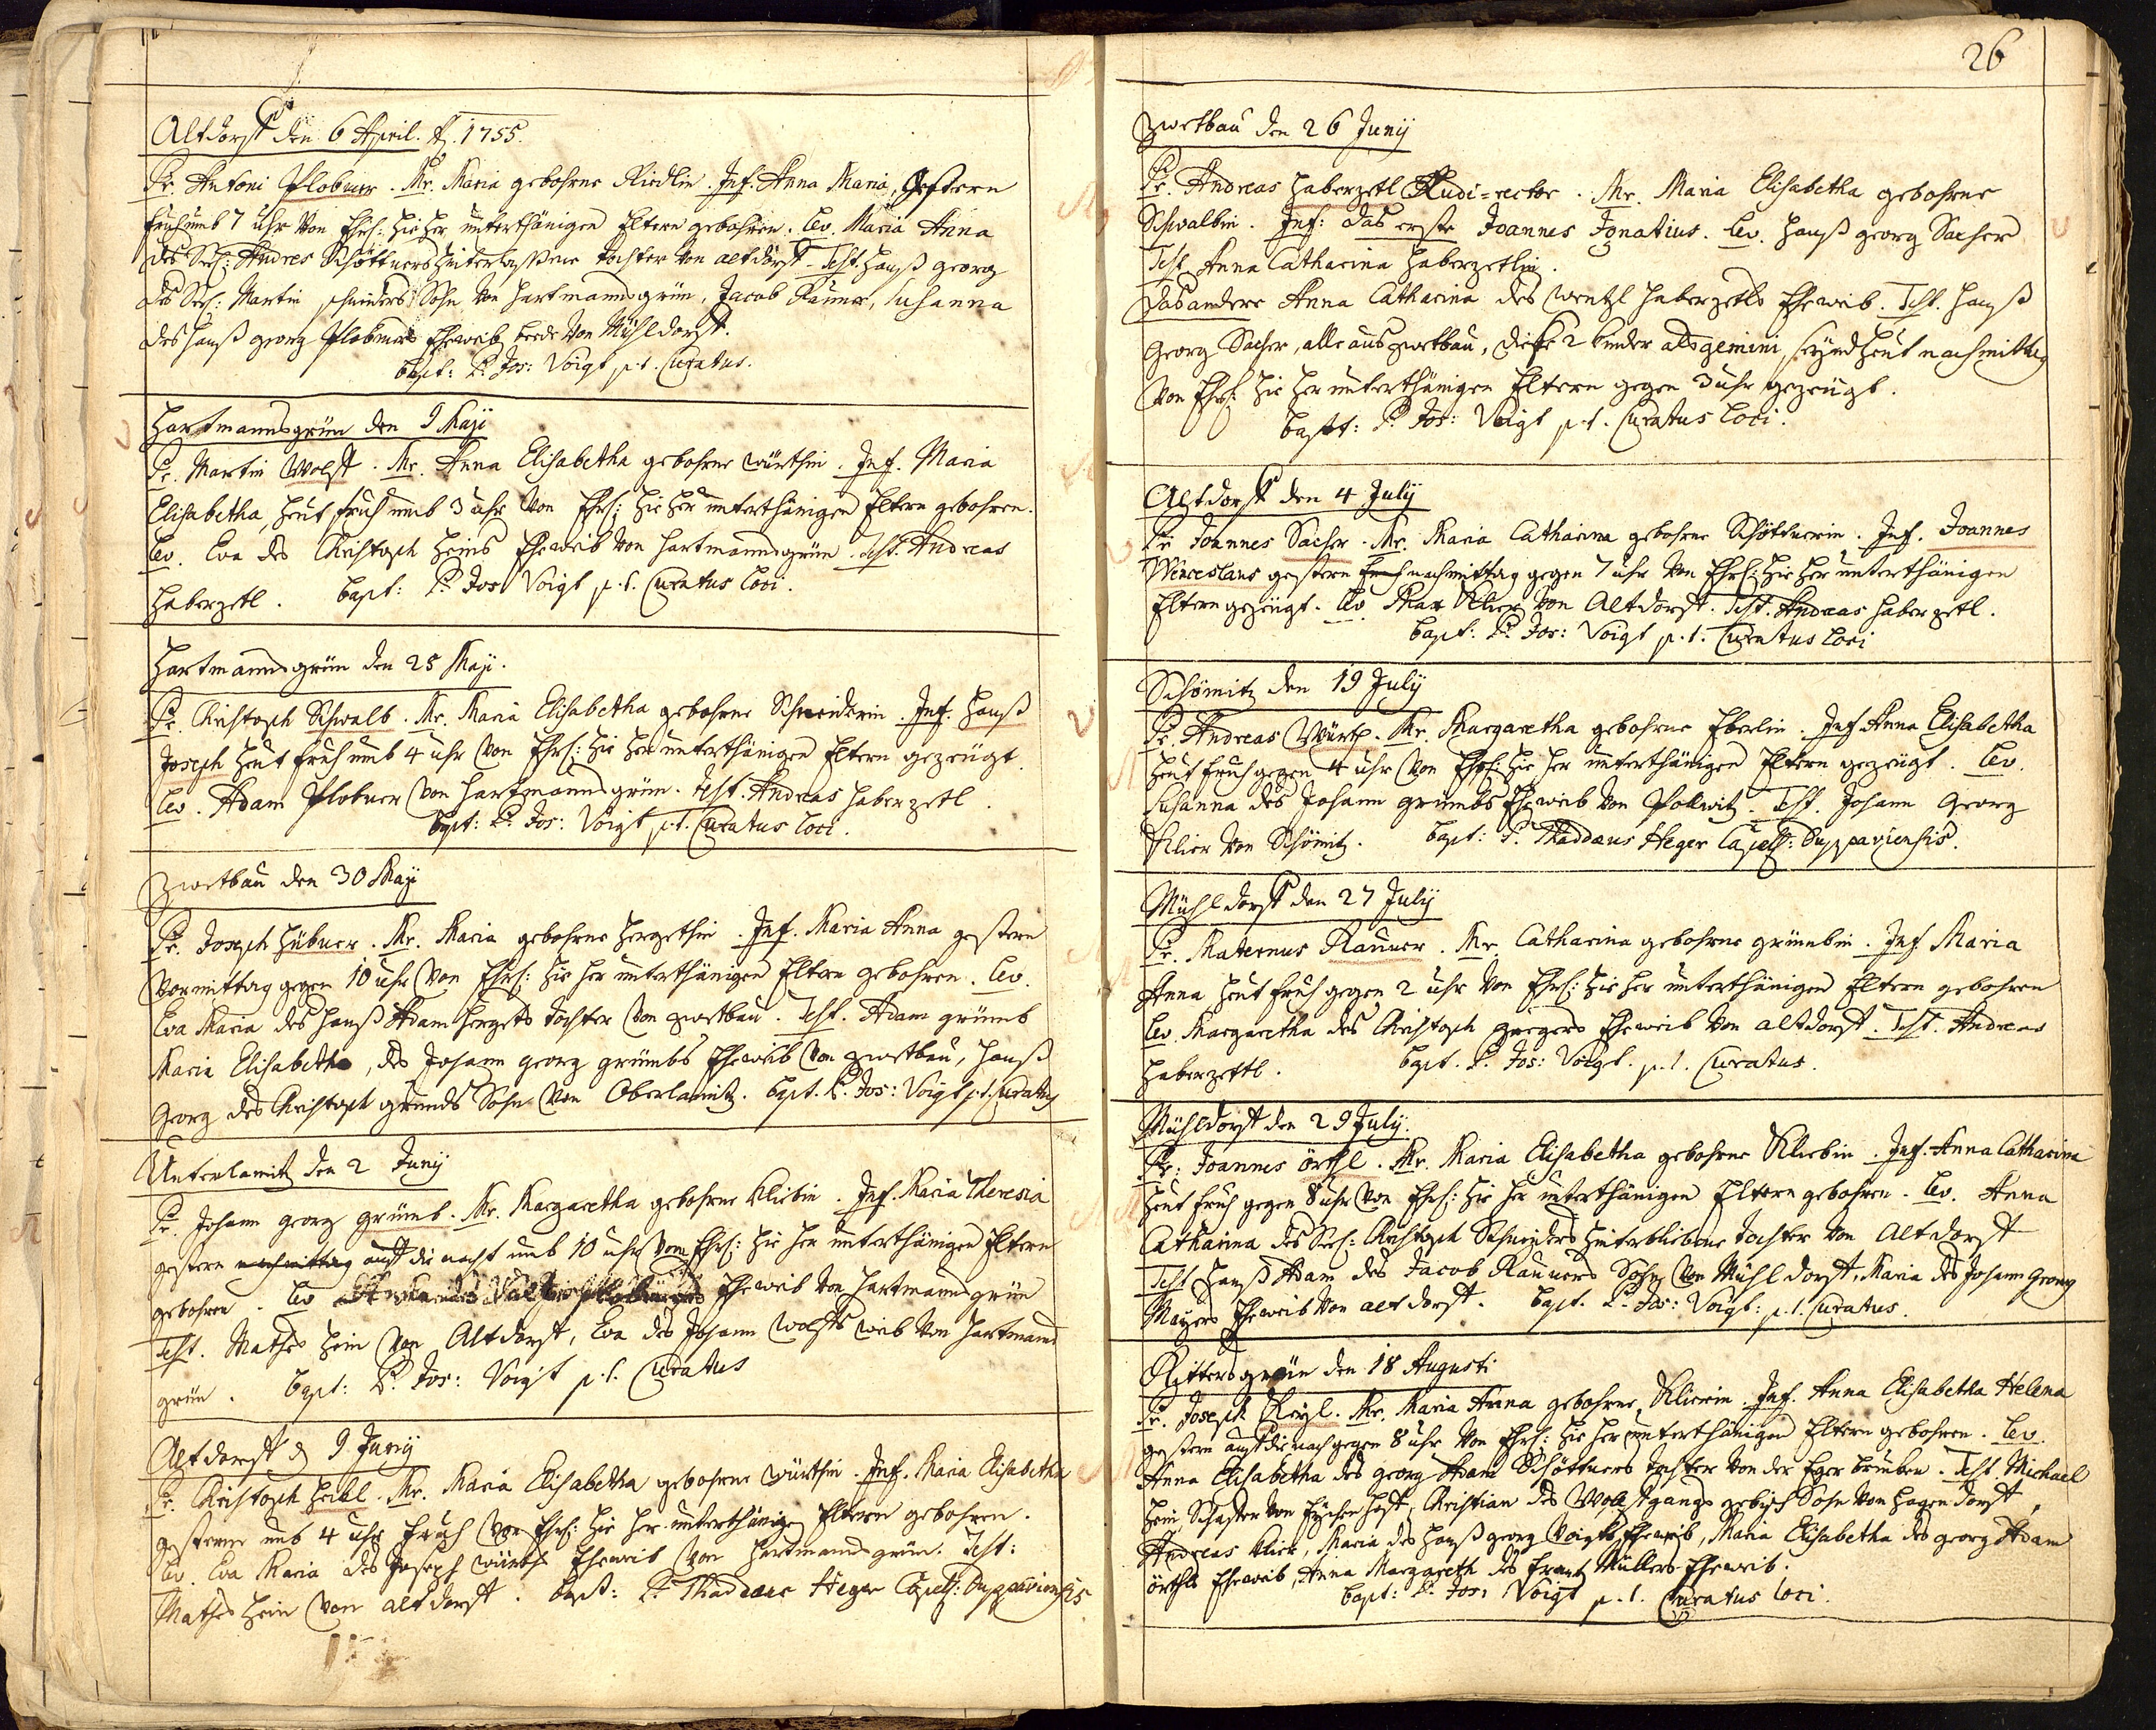 Altdorff den 6 April. A. 1755.
Pr. Antoni Plobner. Mr. Maria gebohrne Riedlin. Inf. Anna Maria, Gestern
fruh umb 7 uhr von Ehrl: hie her unterthänigen Eltern gebohren. Lev. Maria Anna
des Seel: Andres Schöttners hinterlaßene tochter von altdorff Test. Hanß georg
des Seel: Martin schneiders Sohn von Hartmannsgrün, Jacob Rauner, Susanna
des Hanß georg Plobners Eheweib beede von Mühldorff.
bapt: P. Jos: Voigt p.t. Curatus.
Hartmannsgrün den 9 Maji
Pr. Martin Wolff. Mr. Anna Elisabetha gebohrne würthin. Inf. Maria
Elisabetha heut fruh umb 3 uhr von Ehrl: hie her unterthänigen Eltern gebohren.
Lev. Eva des Christoph Heins Eheweib von Hartmannsgrün. Test. Andreas
Haberzetl. bapt: P. Jos: Voigt p.t. Curatus loci.
Hartmannsgrün den 25 Maji.
Pr. Christoph Schwalb. Mr. Maria Elisabetha gebohrne Schneiderin. Inf. Hanß
Joseph heut fruh umb 4 uhr von Ehrl: hie her unterthänigen Eltern gezeugt.
Lev. Adam Plobner von Hartmannsgrün. Test. Andreas Haberzetl.
bapt: P. Jos: Voigt p.t. Curatus loci.
Zwetbau den 30 Maji
Pr. Joseph Hübner. Mr. Maria gebohrne Hergethin. Inf. Maria Anna gestern
Vormittag gegen 10 uhr von Ehrl: hie her unterthänigen Eltern gebohren. Lev.
Eva Maria des Hanß Adam Hergets tochter von zwetbau. Test. Adam grümb
Maria Elisabetha, des Johann georg grümbs Eheweib von zwetbau, Hanß
Georg des Christoph grümbs Sohn von Oberlamitz. bapt. P. Jos: Voigt p.t. Curatus
Unterlamitz den 2 Juny
Pr. Johann georg grümb. Mr. Margaretha gebohrne Kliebin. Inf. Maria Theresia
gestern nachmittag auff die nacht umb 10 uhr von Ehrl: hie her unterthänigen Eltern
gebohren. Lev Eheweib von Hartmannsgrün
Test. Mathes Hein von Altdorff, Eva des Johann Wolffs weib von Hartmanns
grün. bapt: P. Jos: Voigt p.t. Curatus
Altdorff d 9 Juny
Pr. Christoph Heibl. Mr. Maria Elisabetha gebohrne würthin. Inf. Maria Elisabetha
gestern umb 4 uhr fruh von Ehrl: hie her unterthänigen Eltern gebohren.
Lev. Eva Maria des Joseph würths Eheweib von Hartmannsgrün. Test:
Mathes Hein von altdorff. bapt: P. Thaddaeus Heger Capell: Duppaviensis
26
Zwetbau den 26 Junij
Pr. Andreas Haberzetl Ludi-rector. Mr. Maria Elisabetha gebohrne
Schwalbin. Inf: das erste Joannes Ignatius. Lev. Hanß georg Sacher
Test. Anna Catharina Haberzetlin.
das andere Anna Catharina des wentzl Haberzetls Eheweib. Test. Hanß
Georg Sacher, alle aus zwetbau, diese 2 kinder als gemini, seynd heut nachmittag
von Ehrl: hie her unterthänigen Eltern gegen 3 uhr gezeugt.
bapt: P. Jos: Voigt p.t. Curatus loci.
Altdorff den 4 July
Pr. Joannes Sacher. Mr. Maria Catharina gebohrne Schöttnerin. Inf. Joannes
Wenceslaus gestern fruh nachmittag gegen 7 uhr von Ehrl: hie her unterthänigen
Eltern gezeugt. Lev. Max Klier von Altdorff. Test. Andreas Haberzetl.
bapt: P. Jos: Voigt p.t. Curatus loci
Schömitz den 19 July
Pr. Andreas Würth. Mr. Margaretha gebohrne Eberlin. Inf. Anna Elisabetha
heut fruh gegen 4 uhr von Ehrl: hie her unterthänigen Eltern gezeugt. Lev.
Susanna des Johann grümbs Eheweib von Pollwitz. Test. Johann Georg
Klier von Schömitz. bapt: P. Thaddaeus Heger Capell: Duppaviensis.
Mühldorff den 27 July
Pr. Maternus Rauner. Mr. Catharina gebohrne grümbin. Inf. Maria
Anna heut fruh gegen 2 uhr von Ehrl: hie her unterthänigen Eltern gebohren
Lev. Margaretha des Christoph Eheweib von altdorff. Test. Andreas
Haberzettl. bapt. P. Jos: Voigt. p.t. Curatus.
Mühldorff den 29 July.
Pr: Joannes örthl. Mr. Maria Elisabetha gebohrne Kliebin. Inf. Anna Catharina
heut fruh gegen 8 uhr von Ehrl: hie her unterthänigen Eltern gebohren. Lev. Anna
Catharina des Seel: Christoph Schneiders hinterbliebene tochter von Altdorff
Test. Hanß Adam des Jacob Rauners Sohn von Mühldorff, Maria des Johann Georg
Mayers Eheweib von altdorff. bapt. P. Jos: Voigt: p.t. Curatus.
Rittersgrün den 18 Augusti
Pr. Joseph Keyl. Mr. Maria Anna gebohrne Klierin. Inf. Anna Elisabetha Helena
gestern auff die nach gegen 8 uhr von Ehrl: hie her unterthänigen Eltern gebohren. Lev.
Anna Elisabetha des georg Adam Schöttners tochter von der Eger brucken. Test. Michael
Hein Schaffer von, Christian des Wolffgangs Sohn von Hagendorff,
Andreas Klier, Maria des Hanß georg Voigts Eheweib, Maria Elisabetha des georg Adam
örthls Eheweib, Anna Margareth des Frantz Müllers Eheweib.
bapt: P. Jos: Voigt p.t. Curatus loci.